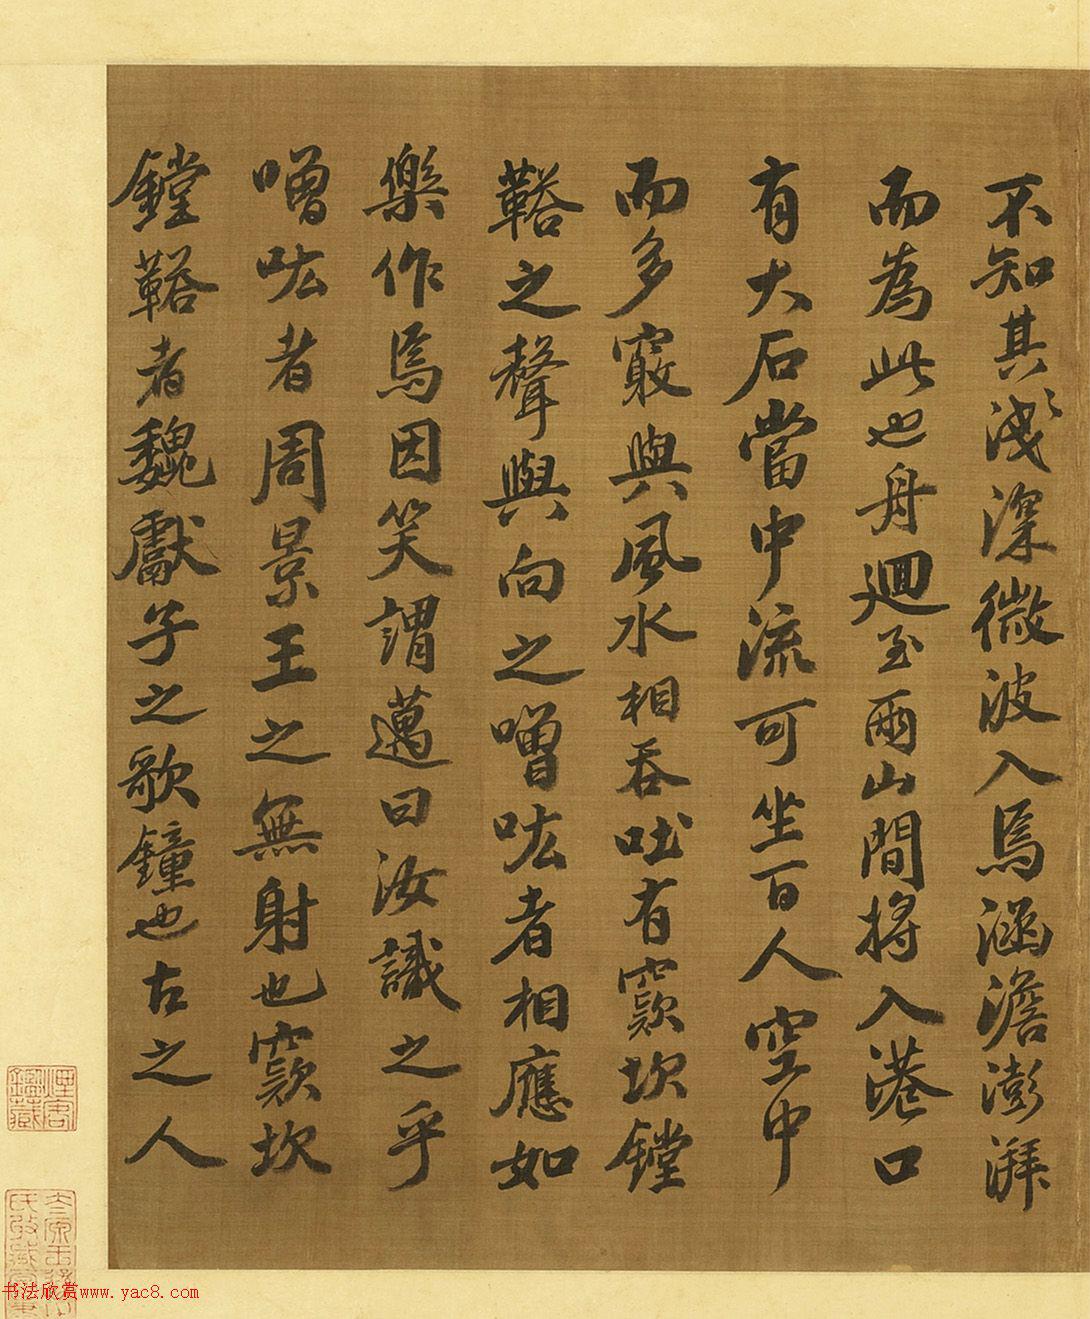 不知其淺深微波入焉涵澹澎湃
而為此也舟迴至兩山間將入港口
有大石當中流可坐百人空中
而多竅與風水相吞吐有窾坎鏜
鞳之聲與向之噌吰者相應如
樂作焉因笑謂邁曰汝識之乎
噌吰者周景王之無射也窾坎
鏜鞳者魏獻子之歌鐘也古之人
书法欣赏www.yac8.com